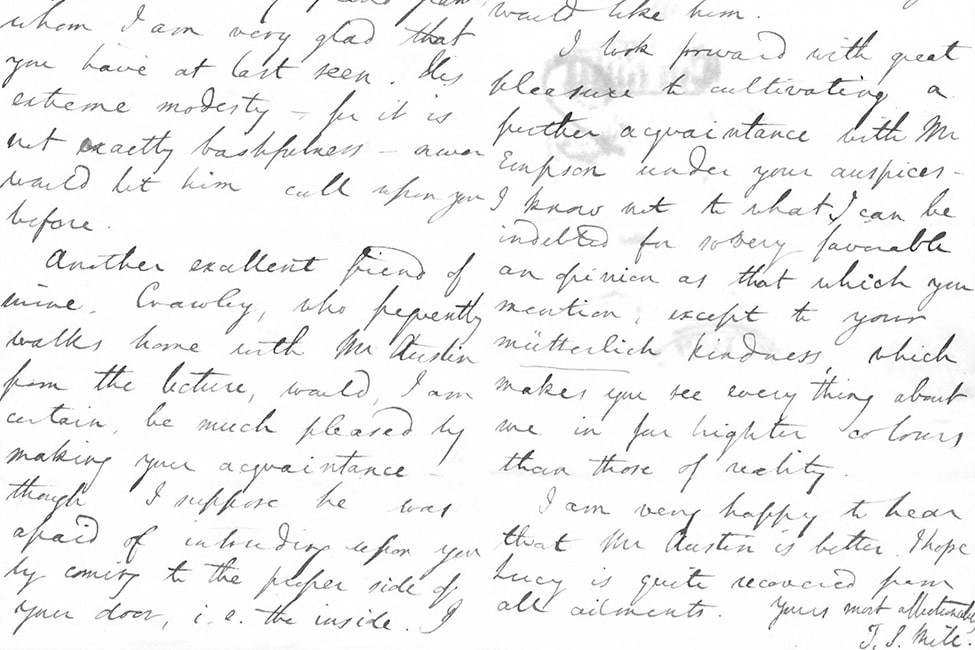 whom I am very glad that
you have at last seen. His
extreme modesty – for it is
not exactly bashfulness – never
would let him call upon you
before.
Another excellent friend of
mine, Crawley, who frequently
walks home with Mr Austin
from the lecture, would, I am
certain, be much pleased by
making your acquaintance –
though I suppose he was
afraid of intruding upon you
by coming to the proper side of
your door, i.e. the inside. I
would like him.
I look forward with great
pleasure to cultivating a
further acquaintance with Mr
Empson under your auspices –
I know not to what I can be
indebted for so very favorable
an opinion as that which you
mention, except to your
mütterlich kindness, which
makes you see every thing about
me in far brighter colours
than those of reality.
I am very happy to hear
that Mr Austin is better. I hope
Lucy is quite recovered from
all ailments. Yours most affectionately
J. S. Mill.